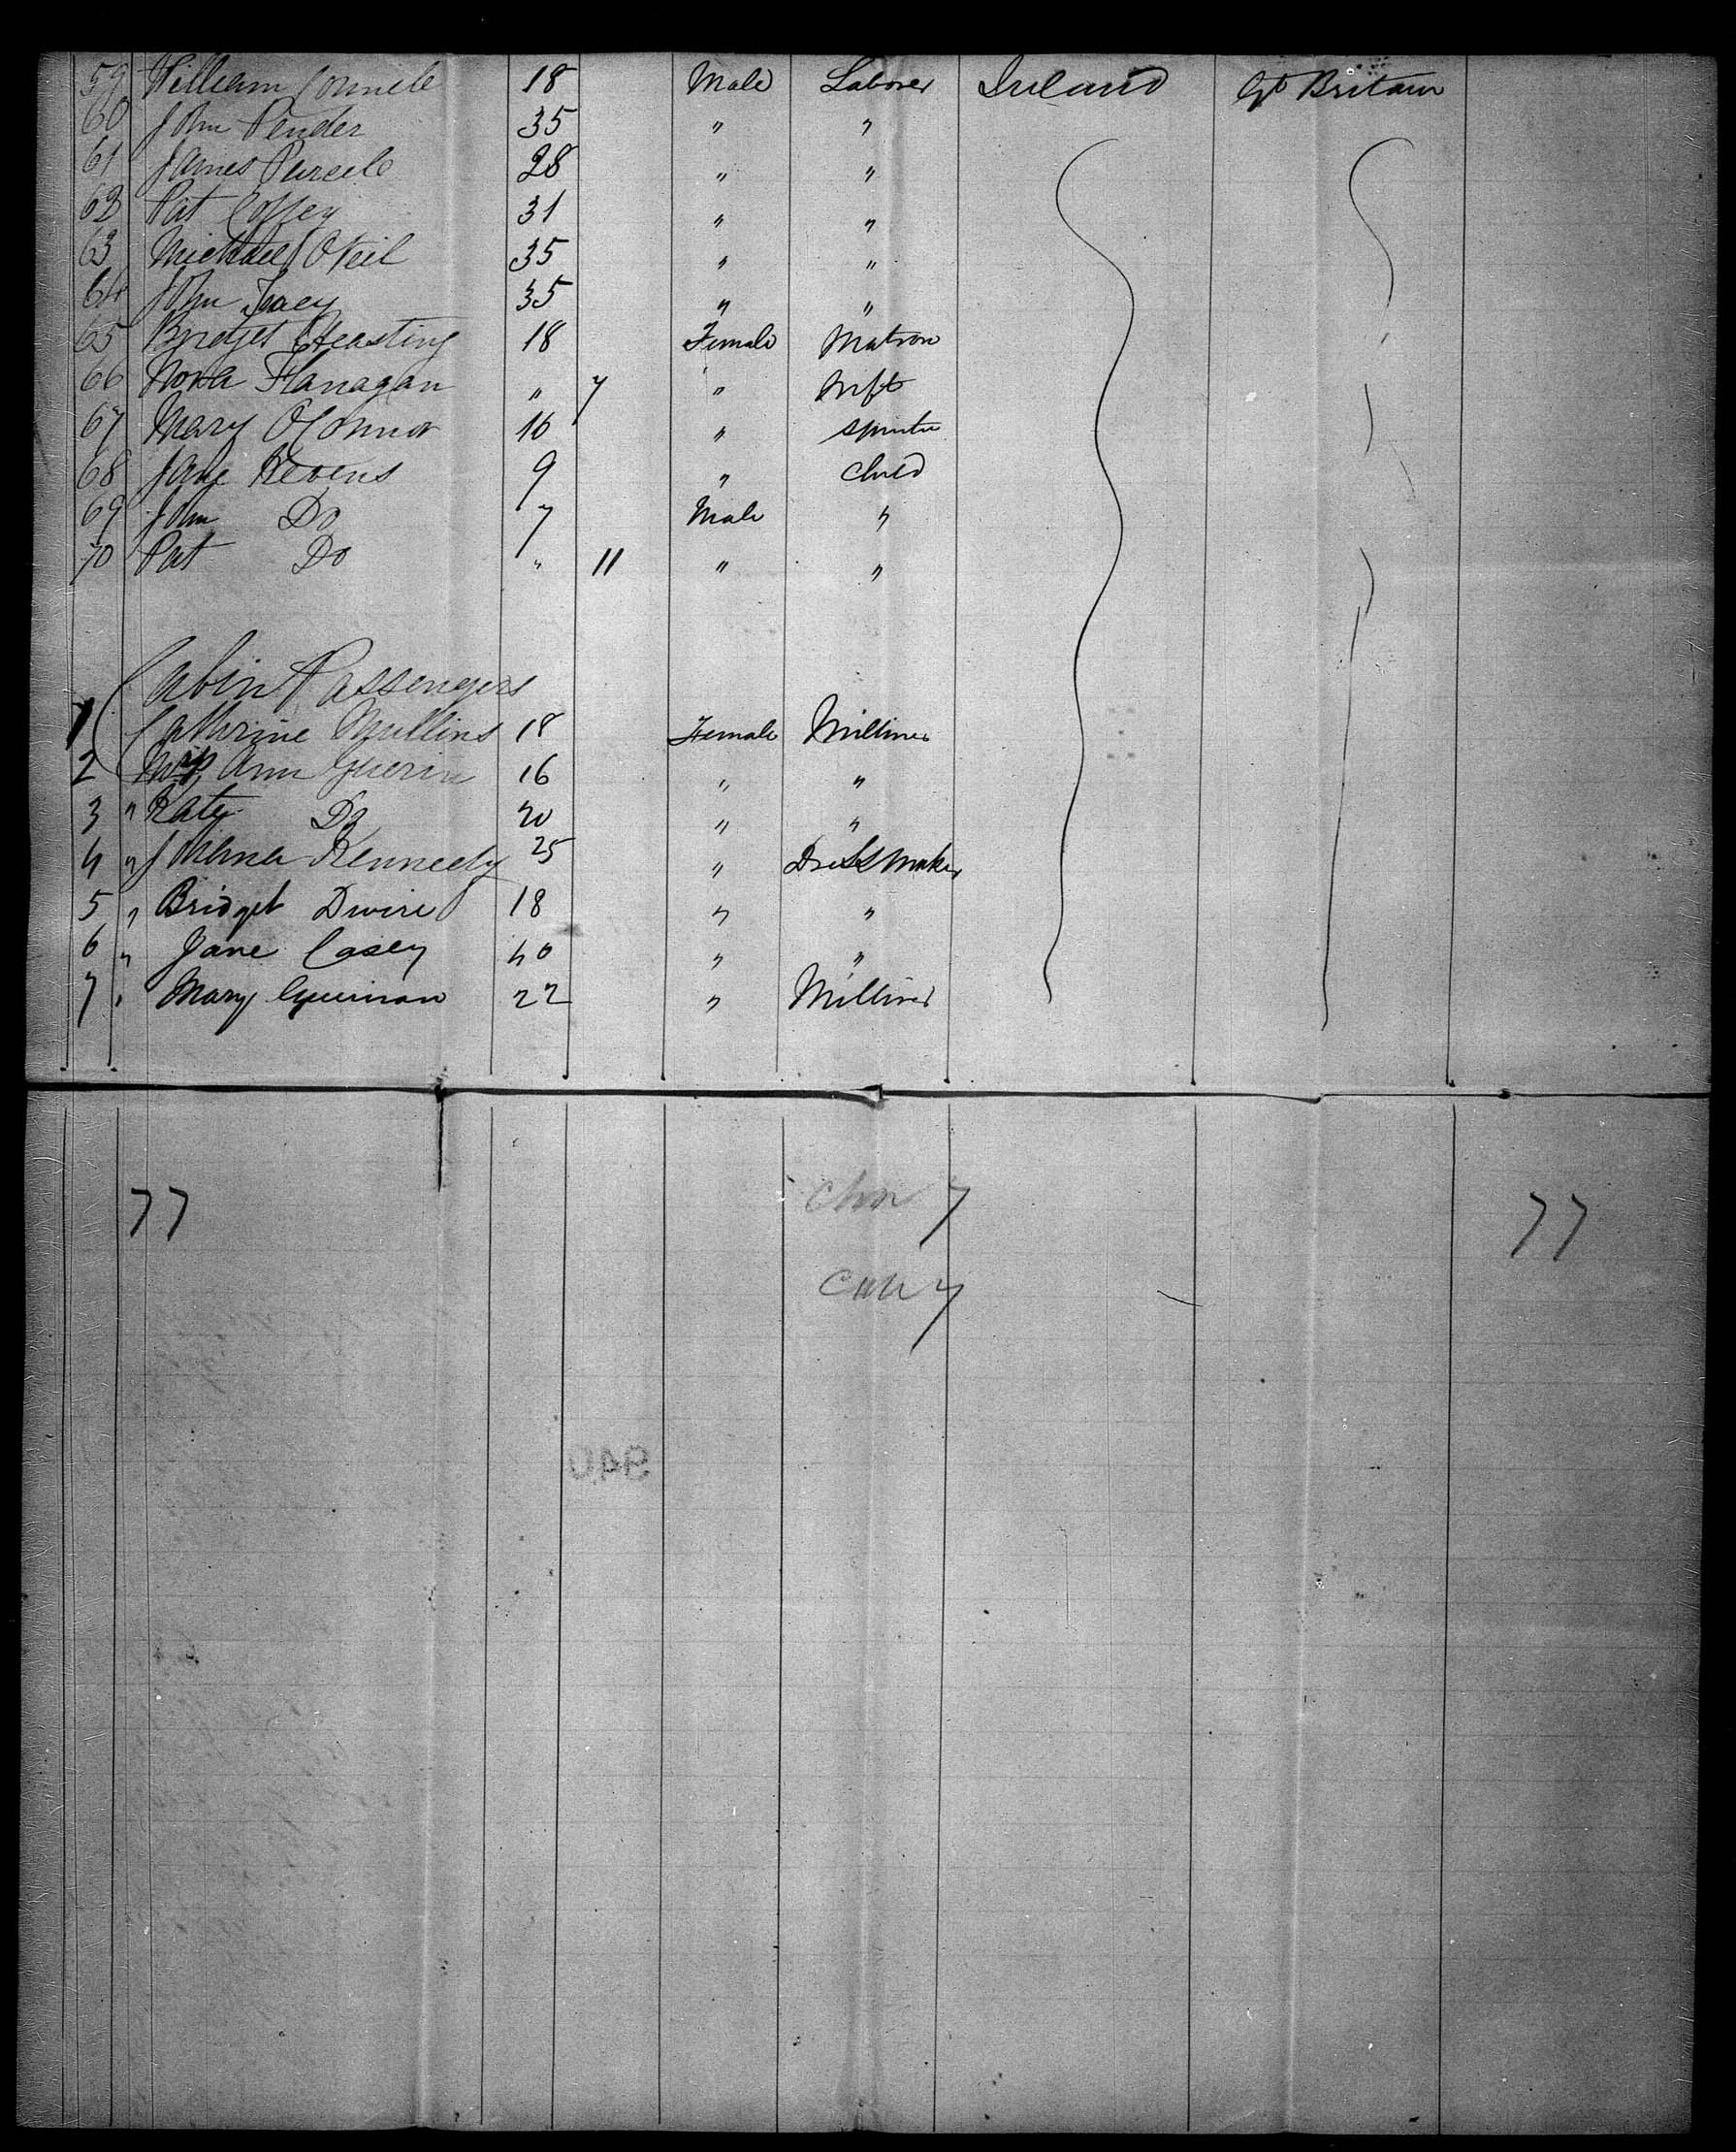 59 William Connell 18 Male Laborer Ireland Gt Britain
60 John Pender 35 " "
61 James Purcell 28 " "
62 Pat Coffey 31 " "
63 Michael O'Neil 35 " "
64 John 35 " "
65 Bridget 18 Female Matron
66 Nora Flanagan " 7 " Inft
67 Mary O'Connor 16 " Spinster
68 Jane 9 " Child
69 John Do 7 Male "
70 Pat Do " 11 " "
Cabin Passengers
1 Cathrine Mullins 18 Female Milliner
2 Miss Ann Guerin 16 " "
3 " Katy Do 20 " "
4 " Johana Kennedy 25 " Dress Maker
5 " Bridget Dwire 18 " "
6 " Jane Casey 40 " "
7 " Mary 22 " Milliner
77 7 77
7
940